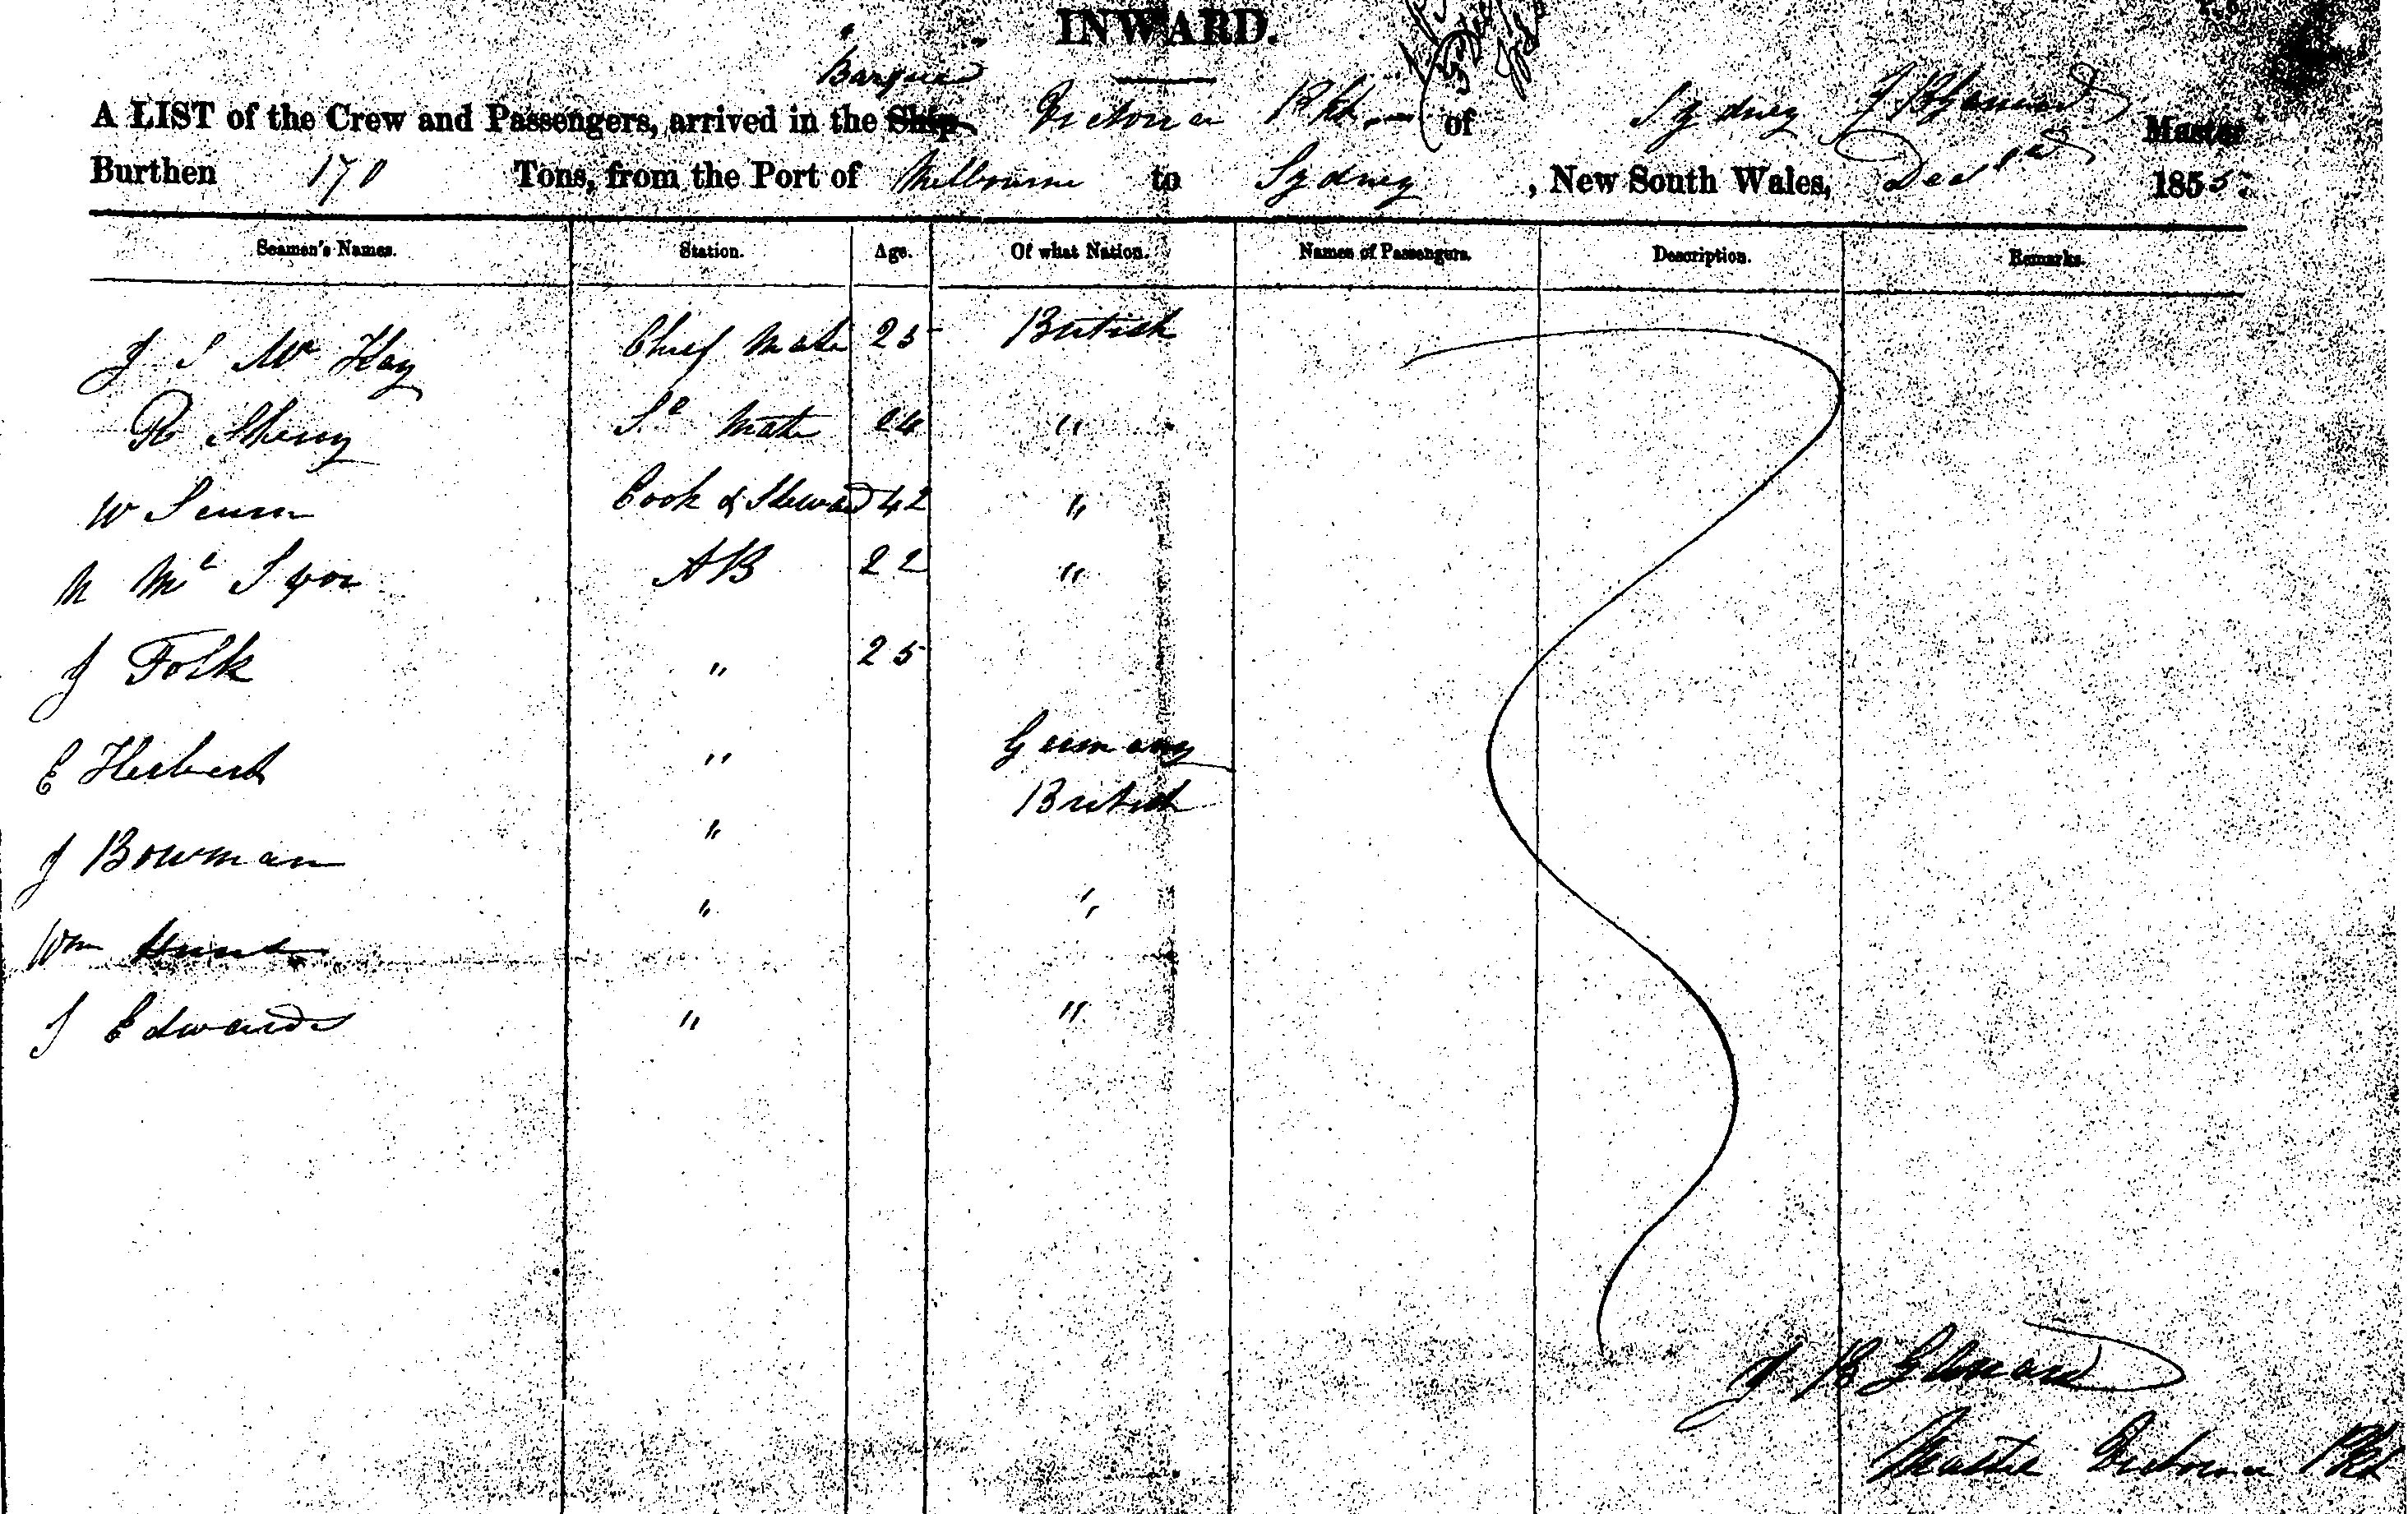 INWARD.
Barque
A LIST of the Crew and Passengers, arrived in the Ship Victoria Pkt of Sydney Master
Burthen 170 Tons, from the Port of Melbourne to Sydney, New South Wales, Dec 1855.
Seamen's Names. Station. Age. Of what Nation. Names of Passengers. Description. Remarks.
J S Mc Kay Chief Mate 25 British
R Sherry Sc Mate "
W Cook & Steward 42 "
M Mc AB 22 "
J Folk " 25
E Herbert " Germany
J Bowman " British
Wm " "
J Edwards " "
J B
Master Victoria Pkt